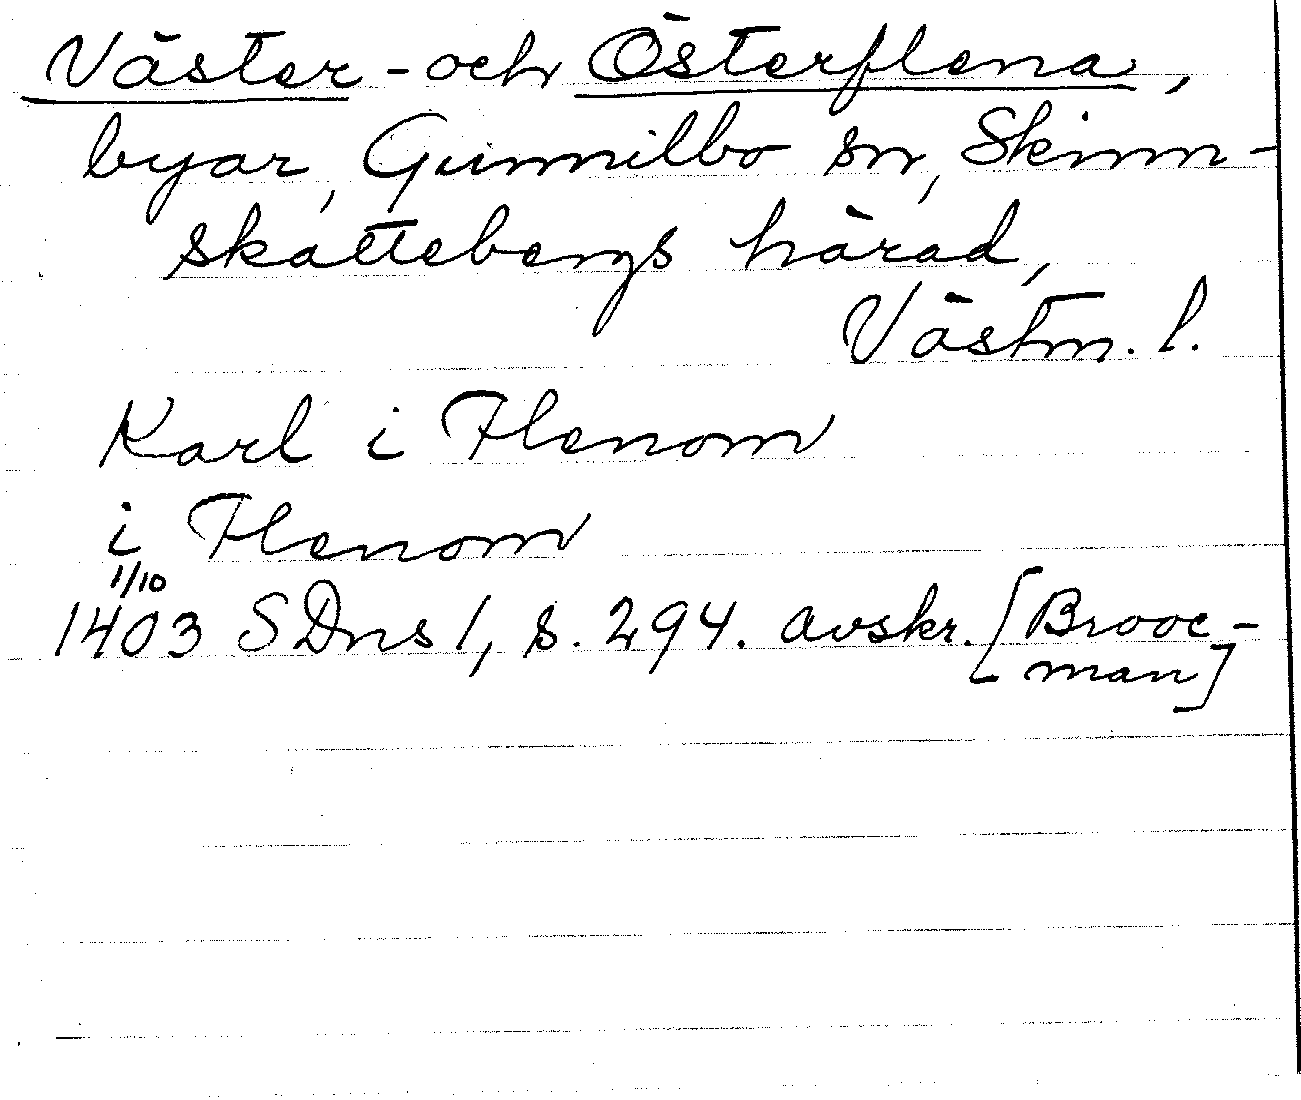 Väster- och Österflena,
byar, Gunnilbo sn, Skinn-
skattebergs härad,
Västm. l.
Karl i Flenom
i Flenom
1/10
1403 SDns 1, s. 294. avskr. [Brooc-
man]